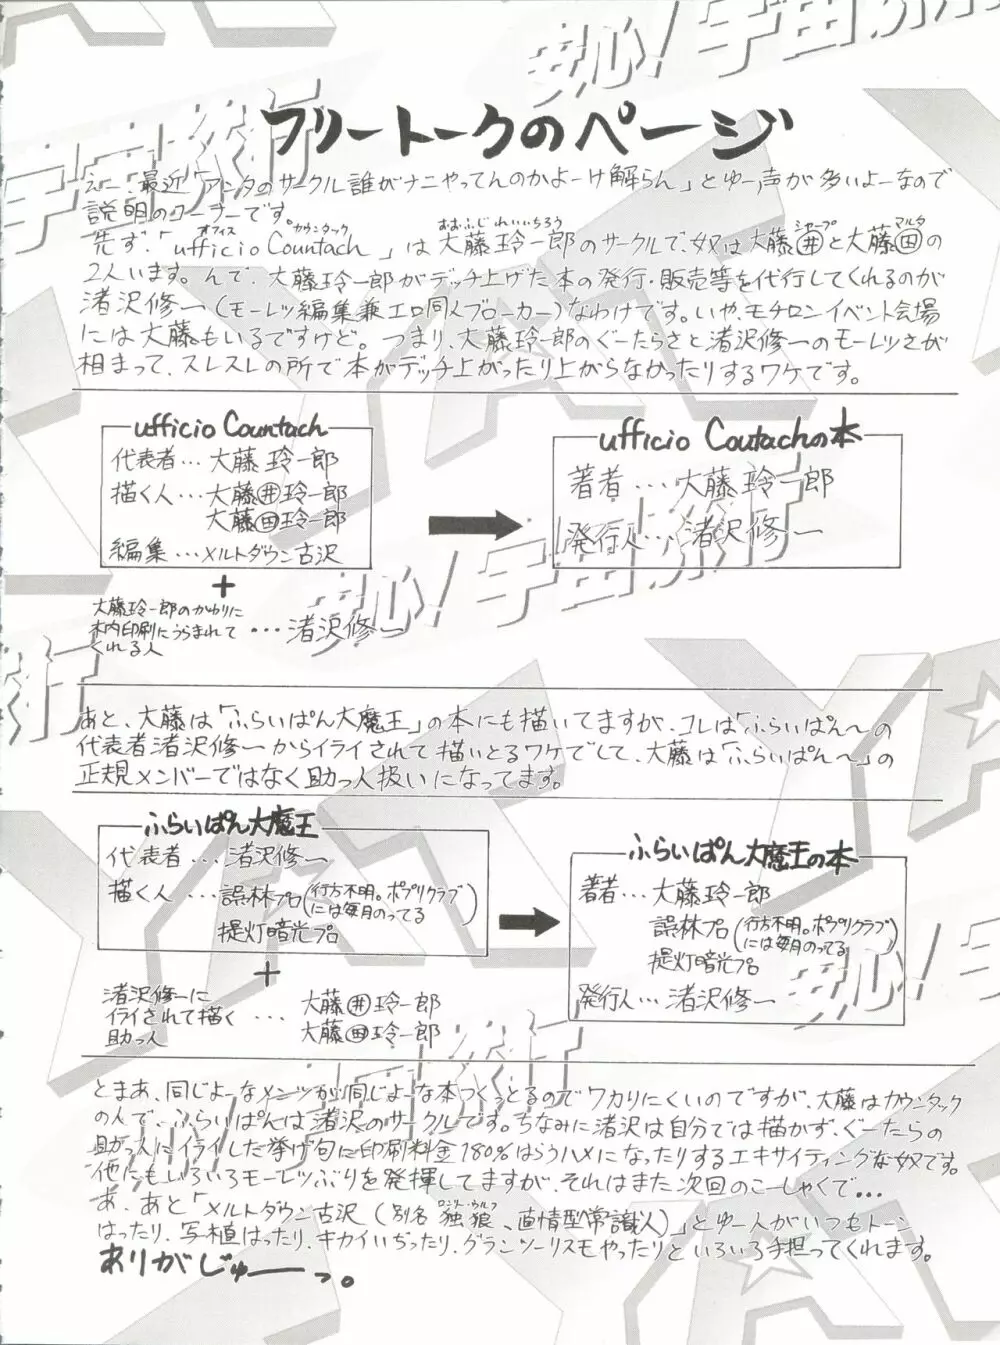 フリートークのページ
えー、最近「アンタのサークル誰がナニやってんのかよーけ解らん」とゆー声が多いよーなので
説明のコーナーです。
先ず、「ufficio Countach」は大藤玲一郎のサークルで、奴は大藤㊉と大藤㊉の
オフィス カウンタック おおふじ れいいちろう シャープ マルタ
2人います。んで、大藤玲一郎がデッチ上げた本の発行・販売等を代行してくれるのが
渚沢修一(モーレツ編集兼エロ同人ブローカー)なわけです。いや、モチロンイベント会場
には大藤もいるですけど。つまり、大藤玲一郎のぐーたらさと渚沢修一のモーレツさが
相まって、スレスレの所で本がデッチ上がったり上がらなかったりするワケです。
ufficio Countach
代表者…大藤玲一郎
描く人…大藤井玲一郎
大藤田玲一郎
編集…メルトダウン古沢
+
大藤玲一郎のかわりに
木内印刷にうらまれて
くれる人
…渚沢修一
ufficio Coutachの本
著者…大藤玲一郎
発行人…渚沢修一
あと、大藤は「ふらいぱん大魔王」の本にも描いてますが、コレは「ふらいぱん〜」の
代表者渚沢修一からイライされて描いとるワケでして、大藤は「ふらいぱん〜」の
正規メンバーではなく助っ人扱いになってます。
ふらいぱん大魔王
代表者…渚沢修一
描く人…誤林プロ(行方不明。ポプリクラブには毎月のってる)
提灯暗光プロ
+
渚沢修一に
イライされて描く
助っ人
…大藤井玲一郎
大藤田玲一郎
ふらいぱん大魔王の本
著者…大藤玲一郎
誤林プロ(行方不明。ポプリクラブには毎月のってる)
提灯暗光プロ
発行人…渚沢修一
とまあ、同じよーなメンツが同じよーな本つくっとるのでワカりにくいのですが、大藤はカウンタック
の人で、ふらいぱんは渚沢のサークルです。ちなみに渚沢は自分では描かず、ぐーたらの
助っ人にイライした挙げ句に印刷料金180%はらうハメになったりするエキサイティングな奴です。
他にもいろいろモーレツぶりを発揮してますが、それはまた次回のこーしゃくで…
あ、あと「メルトダウン古沢(別名独狼、直情型常識人)」とゆー人がいつもトーン
ロンリーウルフ
はったり、写植はったり、キカイいぢったり、グランツーリスモやったりといろいろ手担ってくれます。
ありがじゅーっ。
安心!宇宙旅行
YAT